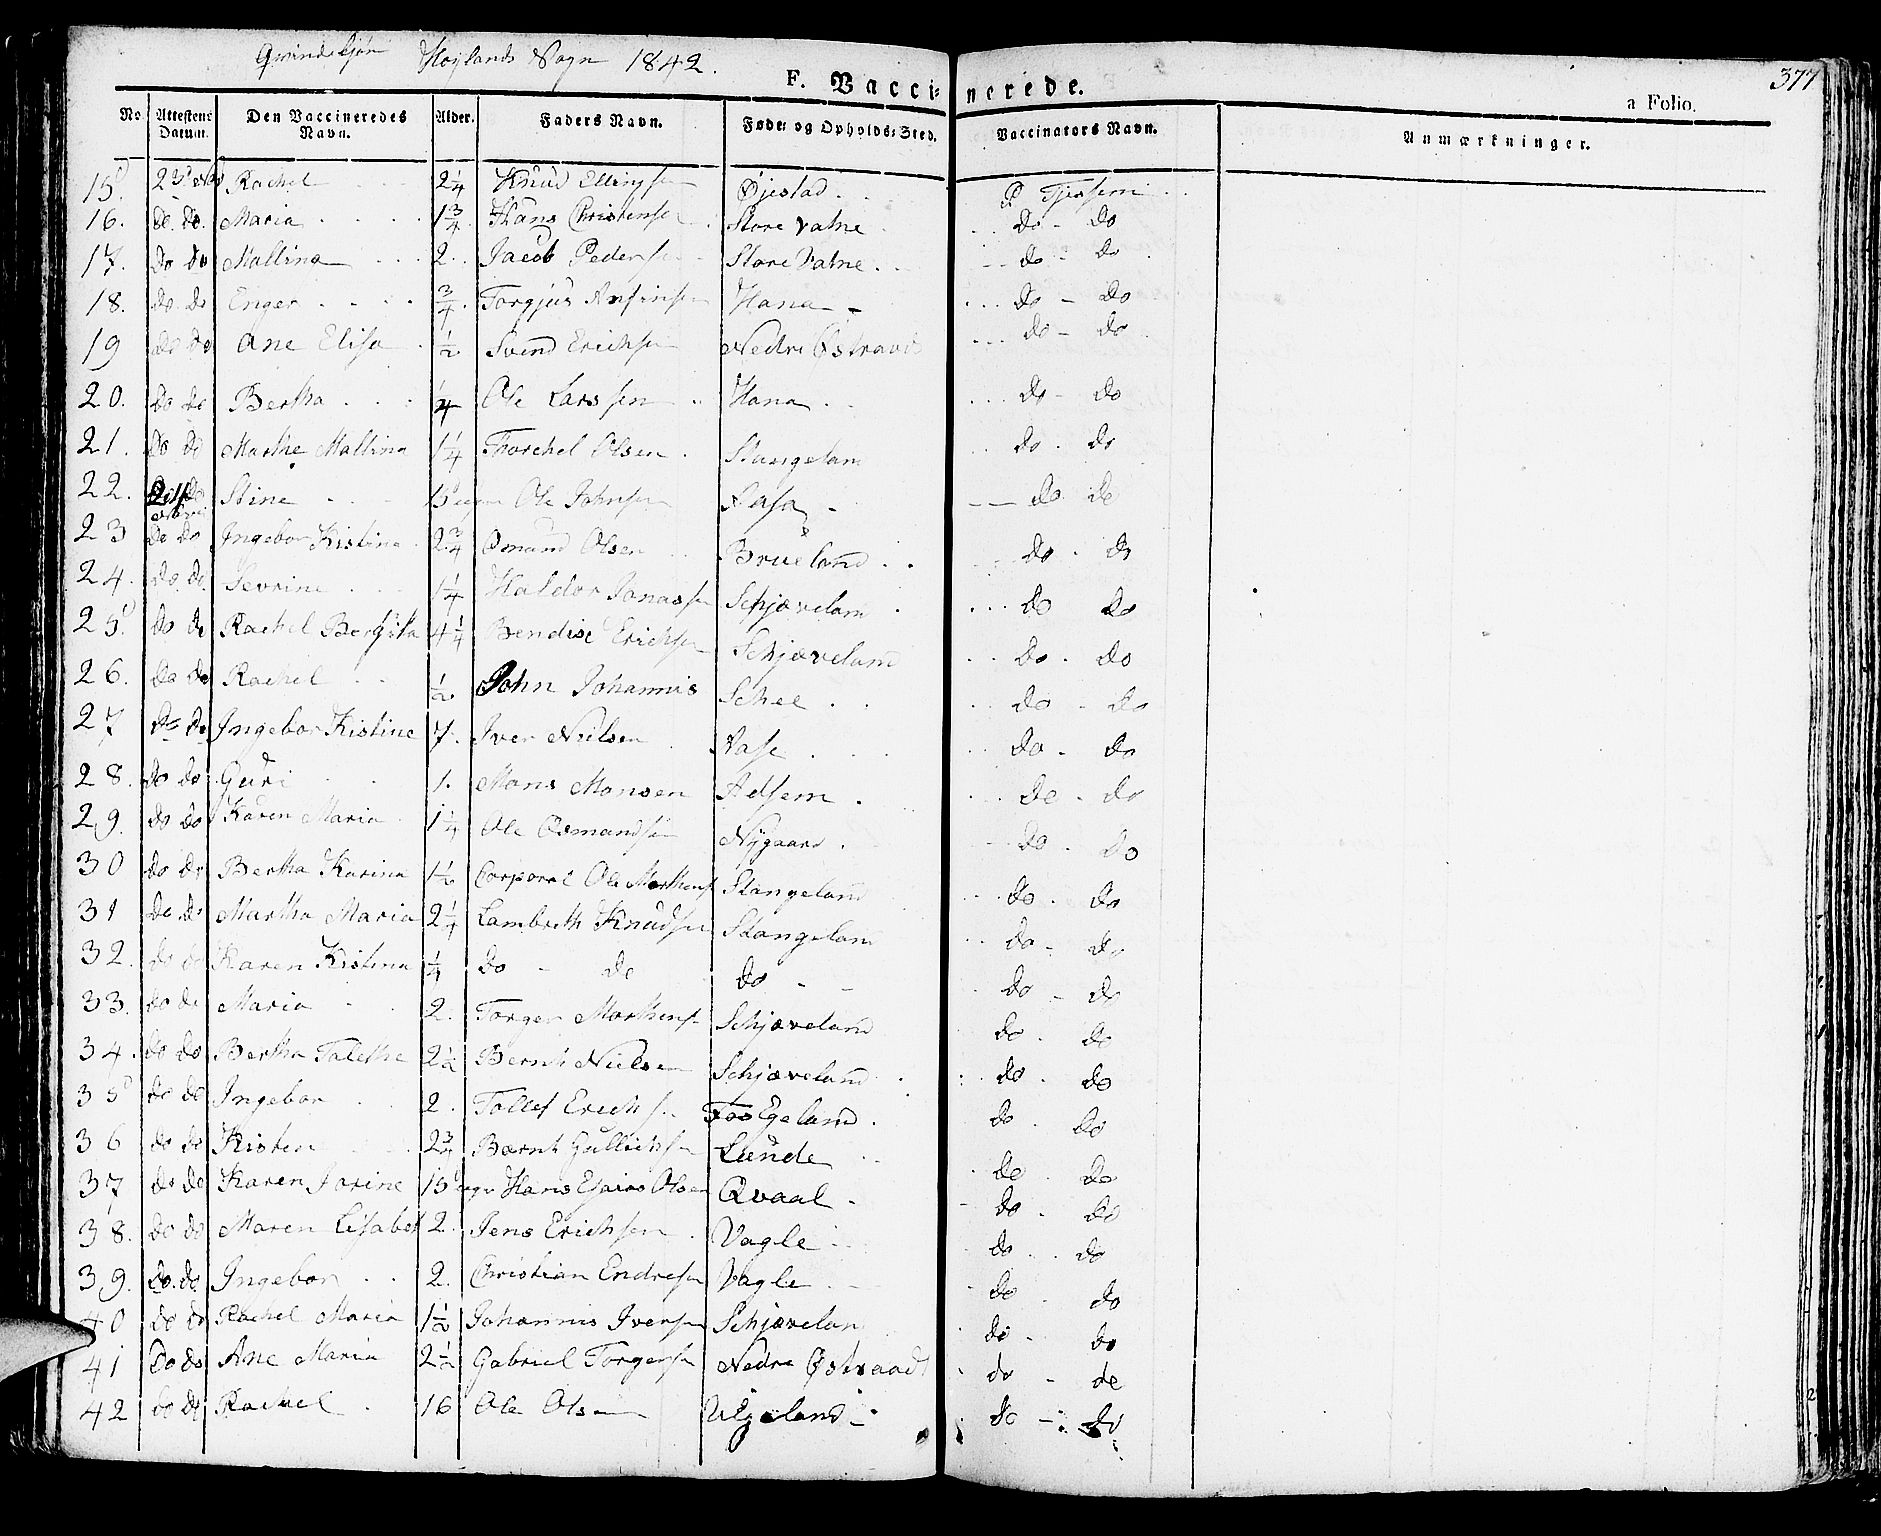 Qvindekjøn Høylands Sogn 1842.
377
F. Vaccinerede.
a Folio.
No. Attestens Datum. Den Vaccineredes Navn. Alder. Faders Navn. Føde- og Opholds-Sted. Vaccinators Navn. Anmærkninger.
15. Rachel 2 1/4 Knud Ellingsen Øjestad. P Tjersem
16. do. do. Maria 1 3/4 Hans Christensen Store Vatne do - do
17. do do Mallina 2. Jacob Pedersen Store Vatne. do - do
18. do. do Enger 3/4 Torgjus Hana - do - do
19 do do Ane Elisa 1/2 Svend Erichsen Nedre Østraad do - do
20. do do Bertha 1/4 Ole Larssen Hana do - do
21. do do Marthe Mallina 1 1/4 Thorchel Olsen. Stangelan do. do
22. Stine 15 Ole Johnsen Aase - do. do
23 do do Ingebor Kistine 2 3/4 Osmund Olsen Brueland. do. do
24. do. do. Sevrine 1 1/4 Haldor Jonassen Schjævelan do do
25. do do Rachel Bergita 4 1/4 Bendix Erichsen Schjæveland do. do
26. do do Rachel 1/2 John Johannis Schee do - do
27 do do Ingebor Kistine 7. Iver Nielsen Aase do - do
28. do do Guri 1. Mons Monsen Adsem. do - do
29. do do Karen Maria 1 1/4 Ole Osmundsen Nygaard. do. do
30 do do Bertha Karina 1 1/2 Corporal Ole Morthens Stangeland do. do
31 do. do Martha Maria 2 1/4 Lambreth Knudsen Stangelan do - do
32. do do Karen Kistina 1/4 do - do do - do - do
33. do do Maria 2. Torger Morthens Schjæveland do. do
34. do do Bertha Talethe 2 1/2 Bernt Nielsen Schjæveland do. do
35 do do Ingebor 2. Tollef Erichs Fos Egeland. do. do
36 do do Kisten 2 3/4 Bærnt Gullichsen Lunde do. do
37 do do Karen Jorine 15 Hans Esaias Olsen Qvaal - do. do
38. do do Maren Lisabet 2. Jens Erichsen. Vagle do. do
39. do. do Ingebor 2. Christian Endresen Vagle do. do
40 do do Rachel Maria 1 1/2 Johannis Iversen Schjævelan do - do
41 do do Ane Maria 2 1/2 Gabriel Torgersen Nedre Østraad do - do
42 do do Rachel 16 Ole Olsen Uelgeland - do - do